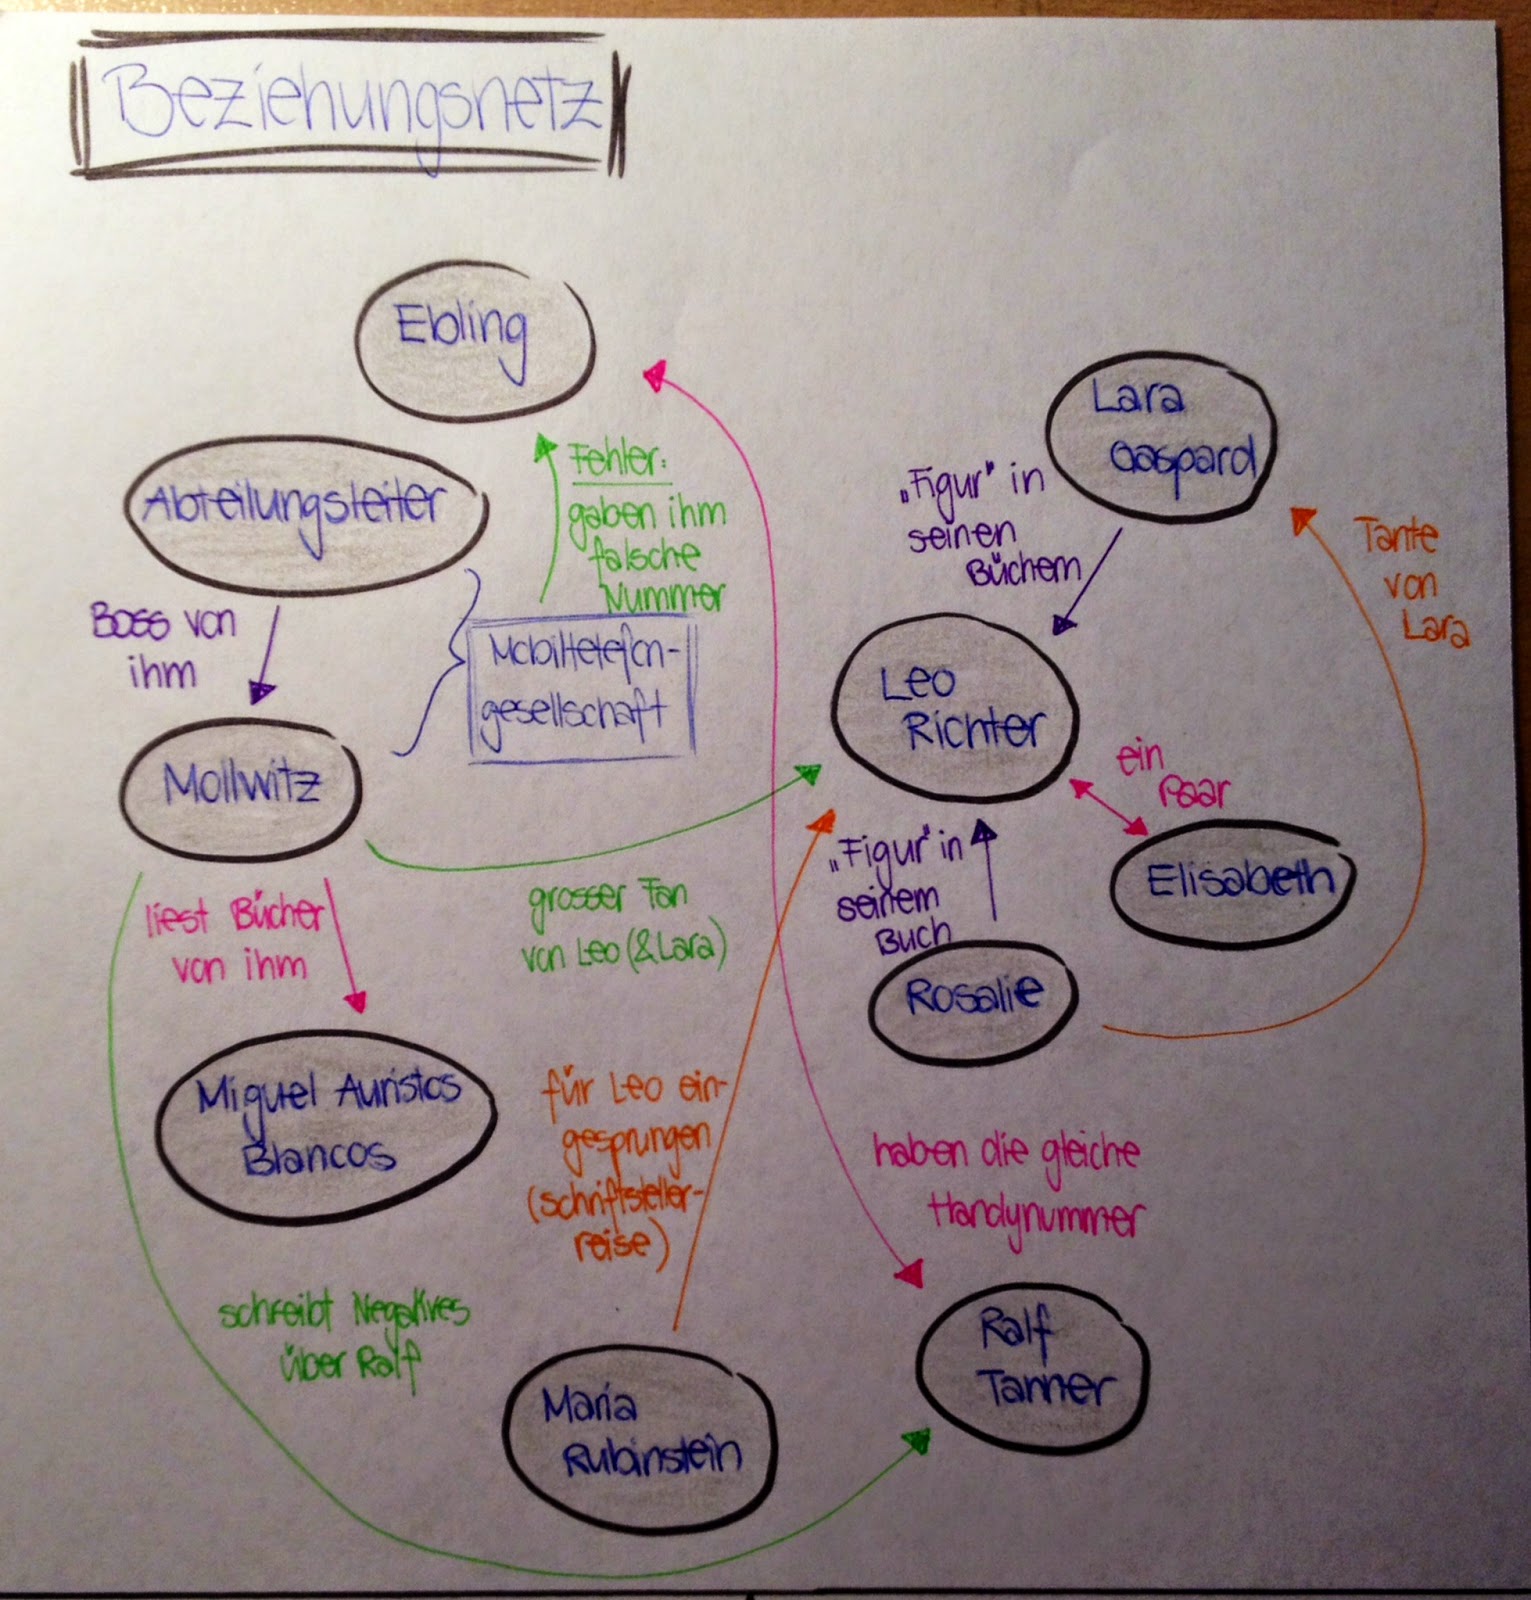 Beziehungsnetz
Ebling
Lara
Gaspard
Abteilungsleiter
Fehler:
gaben ihm
falsche
Nummer
„Figur" in
seinen
Büchern
Tante
von
Lara
Boss von
ihm
Mobiltelefon-
gesellschaft
Leo
Richter
Mollwitz
ein
Paar
Elisabeth
grosser Fan
von Leo (& Lara)
„Figur" in
seinem
Buch
Rosalie
liest Bücher
von ihm
Miguel Auristos
Blancos
für Leo ein-
gesprungen
(schriftsteller-
reise)
haben die gleiche
Handynummer
schreibt Negatives
über Ralf
Maria
Rubinstein
Ralf
Tanner